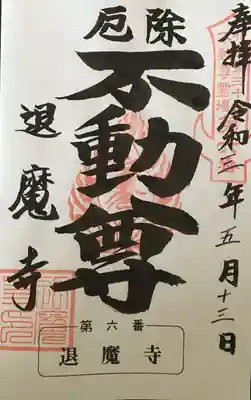 奉拝 令和三年五月十三日
厄除
不動尊
退魔寺
第六番
退魔寺